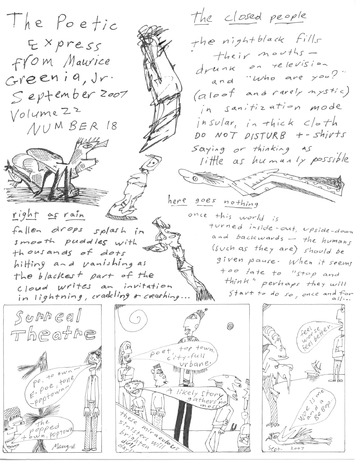 The Poetic
Express
from Maurice
Greenia, Jr.
September 2007
Volume 22
NUMBER 18
right as rain
fallen drops splash in
smooth puddles with
thousands of dots
hitting and vanishing as
the blackest part of the
cloud writes an invitation
in lightning, crackling or crashing...
The closed people
the nightblack fills
their mouths—
drunk on television
and "who are you?"
(aloof and rarely mystic)
in sanitization mode
insular, in thick cloth
DO NOT DISTURB t-shirts
saying or thinking as
little as humanly possible
here goes nothing
once this world is
turned inside-out, upside-down
and backwards — the humans
(such as they are) should be
given pause. When it seems
too late to "stop and
think" perhaps they will
start to do so, once and for
all...
Surreal
Theatre
The
Maurice
poet, top town
city-full
urbane
A likely story
gathers
these
will
Sept. 2007